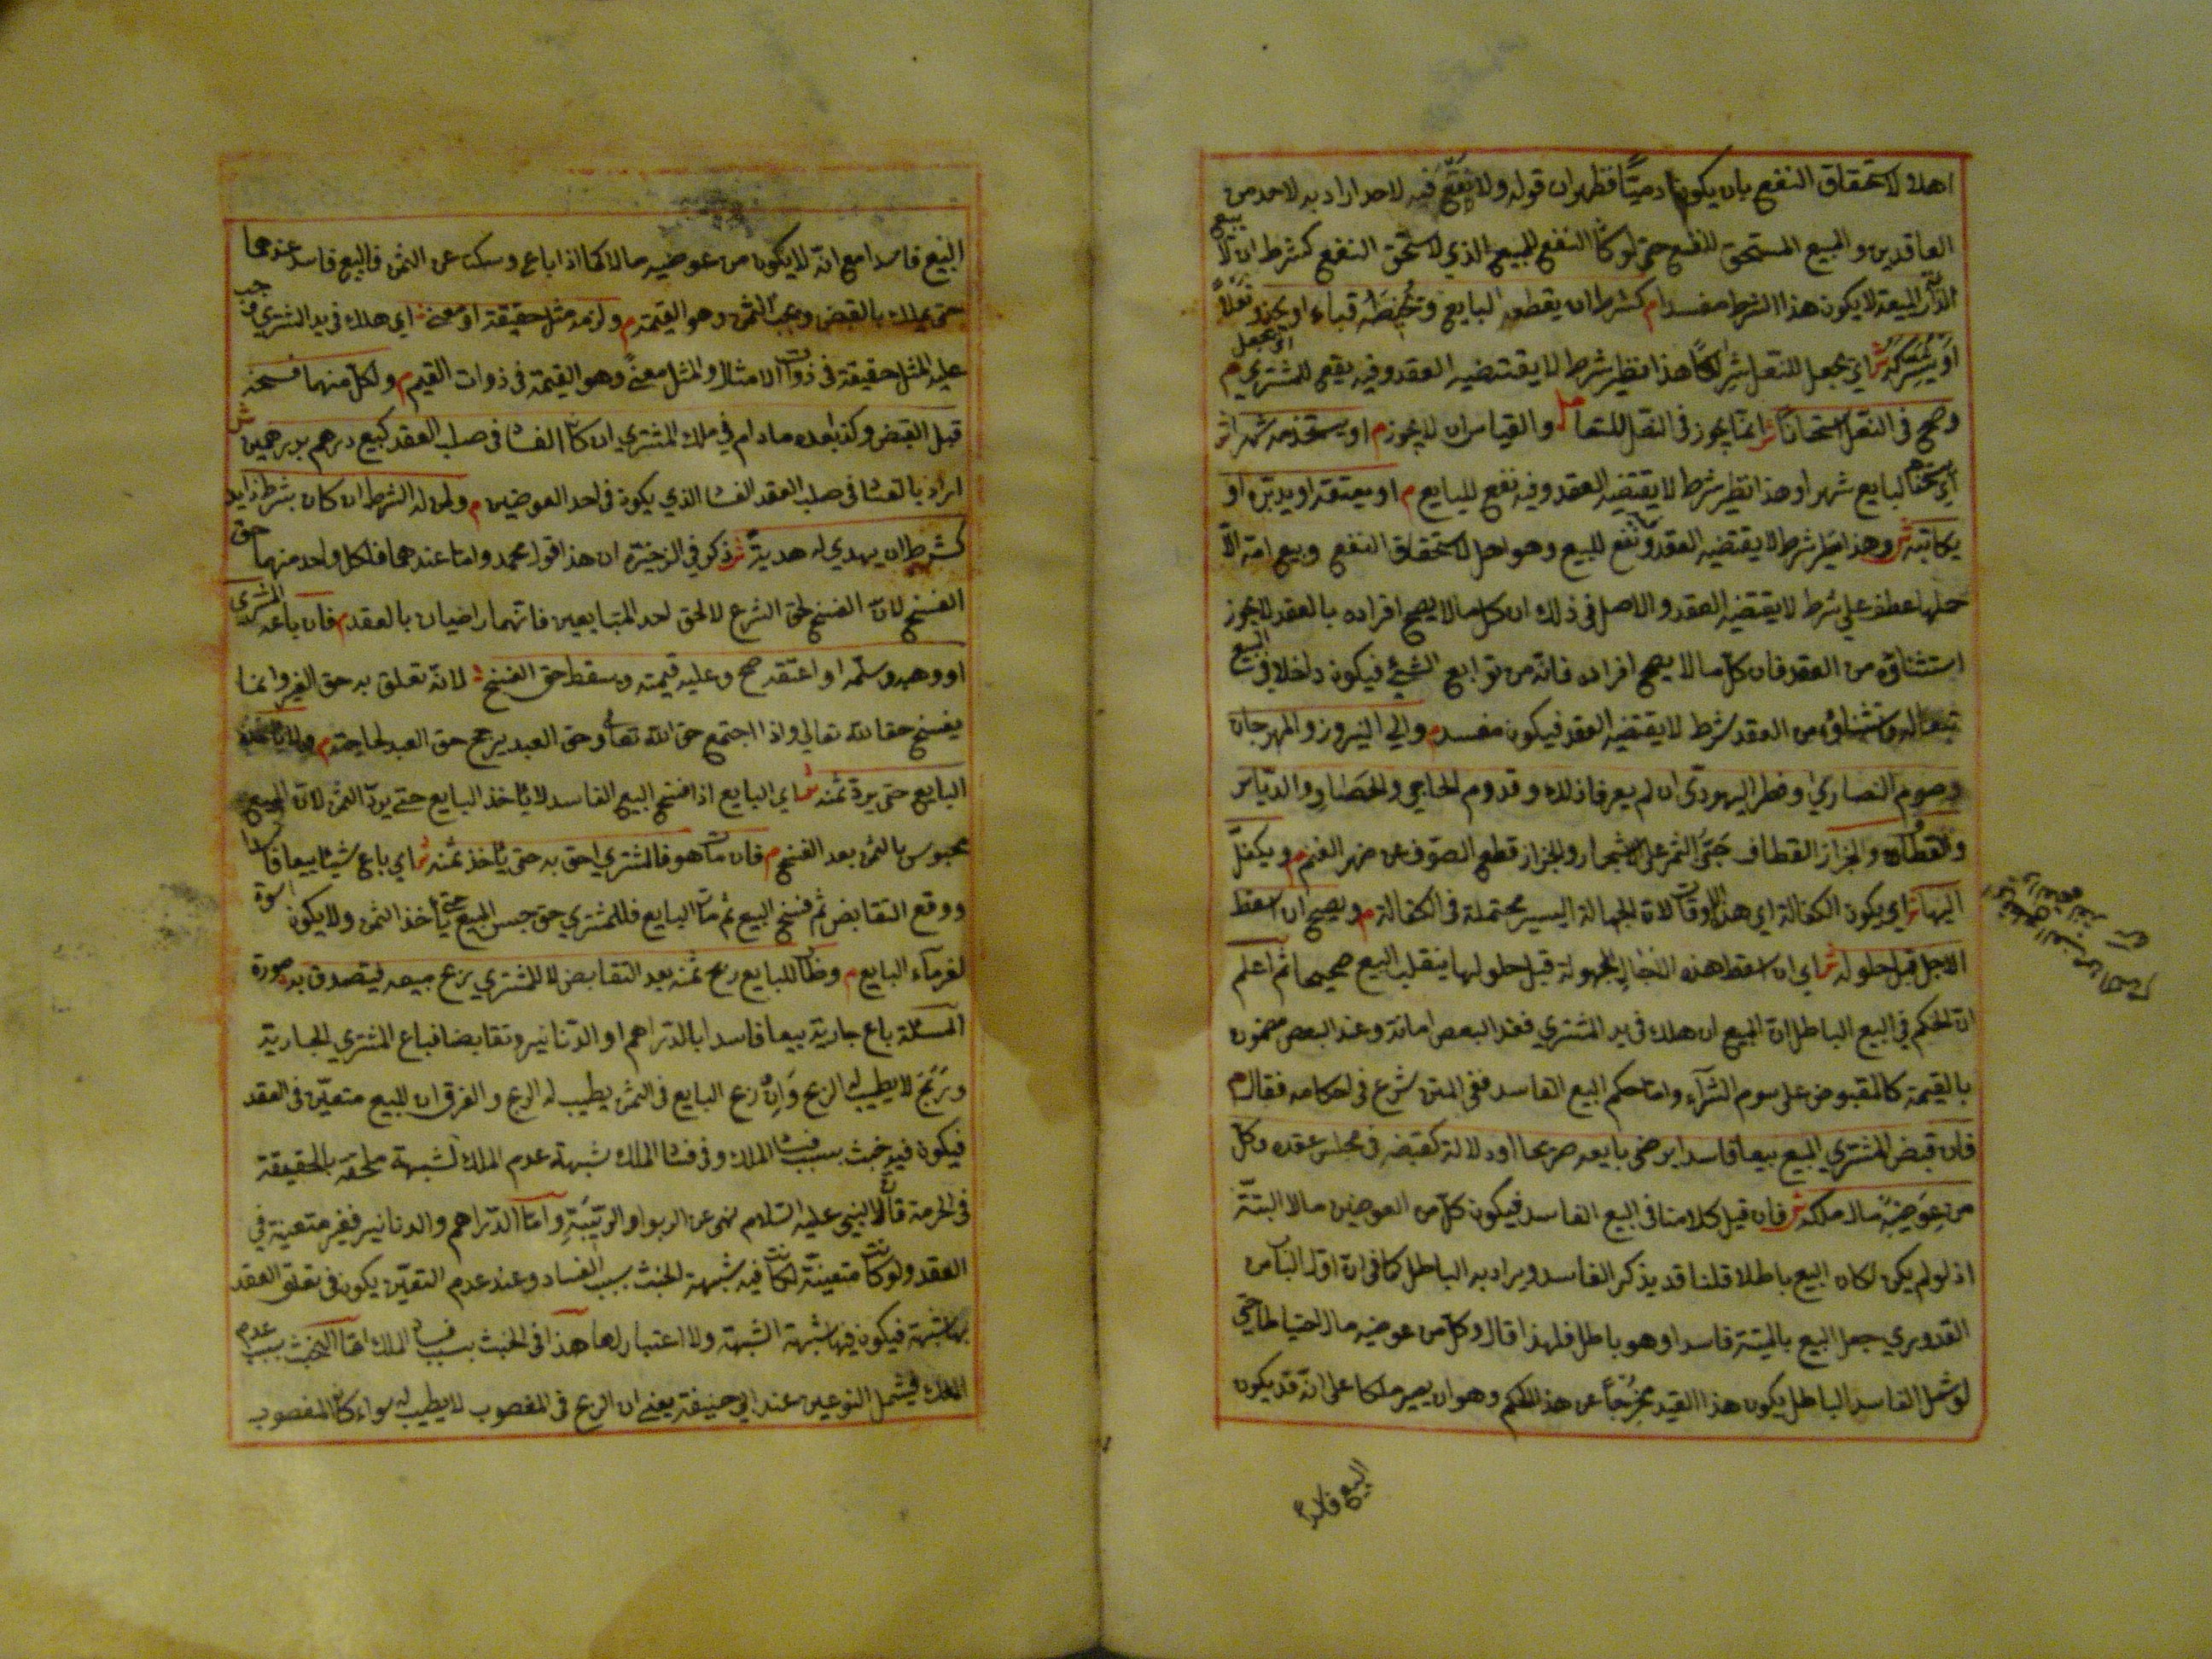 اهلا لاستحقاق النفع بان يكون ادميّا فظهر ان قوله ولا نفع فيه لاحد اراد به لاحد من
العاقدين والمبيع المستحق للنفع حتى لو كان النفع للمبيع الذي لا يستحق النفع كشرط ان لا يبيع
الدابّة المبيعة لا يكون هذا الشرط مفسدا م كشرط ان يقطعه البايع ويخيطه قباء او يحذوه نعلا
او يشركه ش اي يجعل للنعل شراكا هذا نظير شرط لا يقتضيه العقد وفيه نفع للمشتري م
وصح في النعل استحسانا ش انما يجوز في النعل للتعامل والقياس ان لا يجوز م او يستخدمه شهرا ش
اي يستخدم البايع شهرا وهذا نظير شرط لا يقتضيه العقد وفيه نفع للبايع م او يعتقه او يدبّره او
يكاتبه ش وهذا نظير شرط لا يقتضيه العقد وفيه نفع للمبيع وهو اهل لاستحقاق النفع وبيع امة الّا
حملها عطف على شرط لا يقتضيه العقد والاصل في ذلك ان كل ما لا يصح افراده بالعقد لا يجوز
استثناؤه من العقد فان كلّ ما لا يصح افراده فانّه من توابع الشيئ فيكون داخلا في البيع
تبعا له واستثناؤه من العقد شرط لا يقتضيه العقد فيكون مفسدا م والي النيروز والمهرجان
وصوم النصاري وفطر اليهودي ان لم يعرفا ذلك وقدوم الحاجي والحصاد والدياس
والقطاف والجزاز القطاف جنى الثمر على الاشجار والجزاز قطع الصوف عن ضهر الغنم م ويكفل
اليها ش اي يكون الكفالة اي هذه الاوقات لان الجهالة اليسير محتملة في الكفالة م ويصح ان اسقط
الاجل قبل حلوله ش اي ان اسقط هذه الاجال المجهولة قبل حلولها ينقلب البيع صحيحا ثم اعلم
انّ الحكم في البيع الباطل انّ المبيع ان هلك في يد المشتري فعند البعض امانة وعند البعض مضمون
بالقيمة كالمقبوض على سوم الشرآء وامّا حكم البيع الفاسد ففي المتن شرع في احكامه فقال م
فان قبض المشتري المبيع بيعا فاسدا برضى بايعه صريحا او دلالة كقبضه في مجلس عقده وكل
من عوضيه مال ملكه ش فان قيل كلامنا في البيع الفاسد فيكون كلّ من العوضين مالا البتّة
اذ لو لم يكن لكان البيع باطلا قلنا قد يذكر الفاسد ويراد به الباطل كما في انّ اوّل الباب من
القدوري جعل البيع بالميتة فاسدا وهو باطل فلهذا قال وكلّ من عوضيه مال احتياطا حتى
لو شمل الفاسد الباطل يكون هذا القيد مخرجا عن هذا الحكم وهو ان يصير ملكا على انّه قد يكون
البيع فاسدا
البيع فاسدا مع انّه لا يكون من عوضيه مالا كما اذا باع وسكت عن الثمن فالبيع فاسد عندهما
حتى يملك بالقبض ويجب الثمن وهو القيمة م ولزمه مثله حقيقة او معنى ش اي هلك في يد المشتري يجب
عليه المثل حقيقة في ذوات الامثال والمثل معنى وهو القيمة في ذوات القيم م ولكلّ منهما فسخه
قبل القبض وكذا بعده ما دام في ملك المشتري ان كان الفساد في صلب العقد كبيع درهم بدرهمين ش
اراد بالفساد في صلب العقد الفساد الذي يكون في احد العوضين م ولمن له الشرط ان كان بشرط زايد
كشرط ان يهدي له هدية ش ذكر في الذخيرة ان هذا قول محمد وامّا عندهما فلكل واحد منهما حق
الفسخ لانّ الفسخ لحق الشرع لا لحق احد المتبايعين فانّهما راضيان بالعقد م فان باعه المشتري
او وهبه وسلّمه او اعتقه صح وعليه قيمته وسقط حق الفسخ ش لانّه تعلق به حق الغير وانما
يفسخ حقا لله تعالي واذا اجتمع حق الله تعالى وحق العبد يرجح حق العبد لحاجته م ولا ياخذه
البايع حتى يردّ ثمنه ش اي البايع اذا فسخ البيع الفاسد لا يأخذ البايع حتى يردّ الثمن لانّ المبيع
محبوس بالثمن بعد الفسخ م فان مات هو فالمشتري احق به حتى يأخذ ثمنه ش اي باع شيئا بيعا فاسدا
ووقع التقابض ثم فسخ البيع ثم مات البايع فللمشتري حق حبس المبيع حتى يأخذ الثمن ولا يكون اسوة
لغرمآء البايع م وطاب للبايع ربح ثمنه بعد التقابض لا للمشتري ربح مبيعه فيتصدق به صورة
المسئلة باع جارية بيعا فاسدا بالدّراهم او الدّنانير وتقابضا فباع المشتري الجارية
وربح لا يطيب له الربح وان ربح البايع في الثمن يطيب له الربح والفرق ان المبيع متعيّن في العقد
فيكون فيه خبث بسبب فساد الملك وفي فساد الملك شبهة عدم الملك الشبهة ملحقة بالحقيقة
في الحرمة قال النبي عليه السّلام نهى عن الربوا والريبة وامّا الدّراهم والدنانير فغير متعينة في
العقد ولو كانت متعينة لكانت فيه شبهة الخبث بسبب الفساد وعند عدم التعيّن يكون في تعلق العقد
بها شبهة فيكون فيها شبهة الشبهة ولا اعتبار لها هذا في الخبث بسبب فساد الملك امّا الخبث بسبب عدم
الملك فيشمل النوعين عند ابي حنيفة يعني ان الربح في المغصوب لا يطيب له سواء كان المغصوب